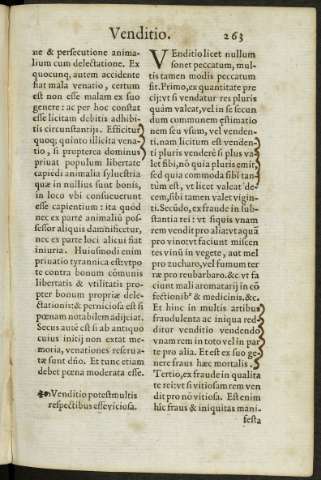 Venditio. 263
ne & persecutione anima-
lium cum delectatione. Ex
quocunq; autem accidente
fiat mala venatio, certum
est non esse malam ex suo
genere: ac per hoc constat
esse licitam debitis adhibi-
tis circunstantijs. Efficitur
quoq; quinto illicita vena-
tio, si propterea dominus
priuat populum libertate
capiēdi animalia syluestria
quæ in nullius sunt bonis,
in loco vbi consueuerunt
esse capientium: ita quòd
nec ex parte animaliū pos-
sessor aliquis damnificetur,
nec ex parte loci alicui fiat
iniuria. Huiusmodi enim
priuatio tyrannica est: vtpo
te contra bonum cōmunis
libertatis & vtilitatis pro-
pter bonum propriæ dele-
ctationis: & perniciosa est si
pœnam notabilem adijciat.
Secus autē est si ab antiquo
cuius initij non extat me-
moria, venationes reserua-
tæ sunt dño. Et tunc etiam
debet pœna moderata esse.
Venditio potest multis
respectibus esse viciosa.
VEnditio licet nullum
sonet peccatum, mul-
tis tamen modis peccatum
fit. Primo, ex quantitate pre
cij: vt si vendatur res pluris
quàm valeat, vel in se secun
dum communem ęstimatio
nem seu vsum, vel venden-
ti. nam licitum est venden-
ti pluris vendere si plus va-
let sibi, nō quia pluris emit,
sed quia commoda sibi tan-
tùm est, vt licet valeat de-
cem, sibi tamen valet vigin-
ti. Secūdo, ex fraude in sub-
stantia rei: vt siquis vnam
rem vendit pro alia: vt aquā
pro vino: vt faciunt miscen
tes vinū in vegete, aut mel
pro zucharo, vel fumum ter
ræ pro reubarbaro. &c vt fa
ciunt mali aromatarij in cō
fectionib° & medicinis, &c.
Et hinc in multis artibus
fraudulenta ac iniqua red-
ditur venditio vendendo
vnam rem in toto vel in par
te pro alia. Et est ex suo ge-
nere fraus hæc mortalis.
Tertio, ex fraude in qualita
te rei: vt si vitiosam rem ven
dit pro nō vitiosa. Est enim
hîc fraus & iniquitas mani-
festa